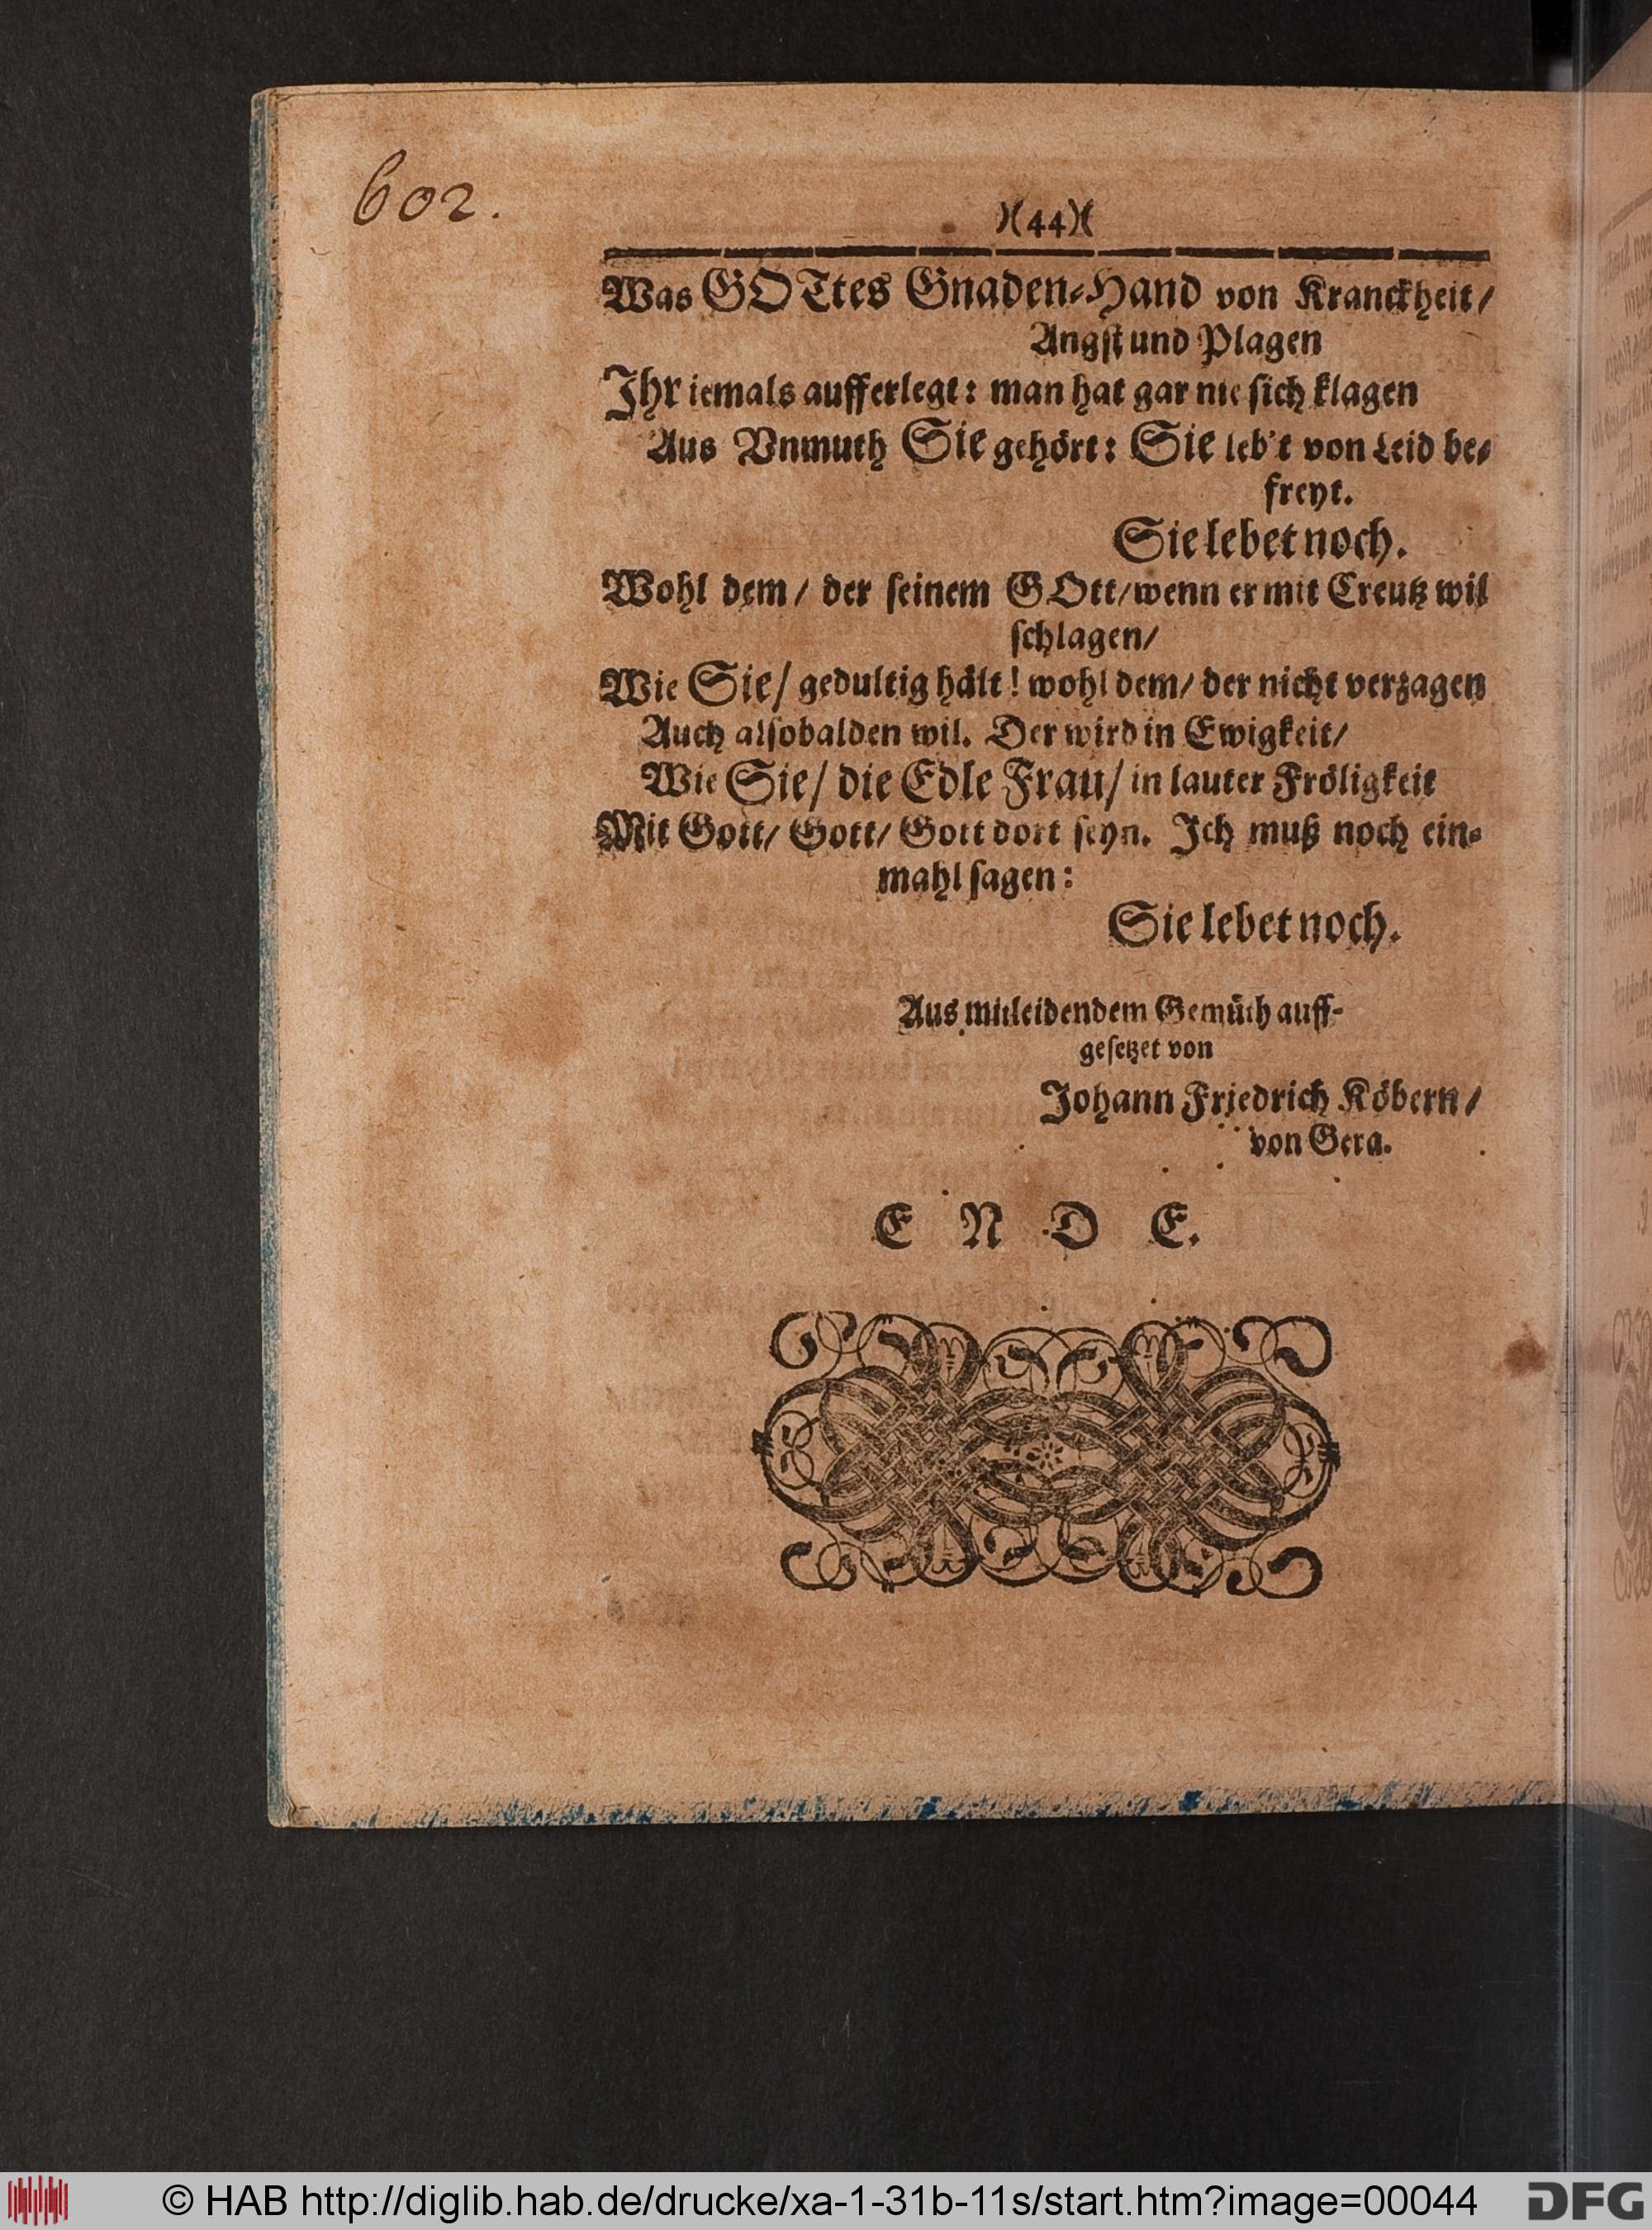 602.
)(44)(
Was GOTtes Gnaden-Hand von Kranckheit/
Angst und Plagen
Ihr iemals aufferlegt: man hat gar nie sich klagen
Aus Vnmuth Sie gehört: Sie leb't von Leid be-
freyt.
Sie lebet noch.
Wohl dem/ der seinem GOtt/ wenn er mit Creutz wil
schlagen/
Wie Sie/ gedultig hält! wohl dem/ der nicht verzagen
Auch alsobalden wil. Der wird in Ewigkeit/
Wie Sie/ die Edle Frau/ in lauter Fröligkeit
Mit Gott/ Gott/ Gott dort seyn. Ich muß noch ein-
mahl sagen:
Sie lebet noch.
Aus mitleidendem Gemüth auff-
gesetzet von
Johann Friedrich Köbern/
von Gera.
E N D E.
© HAB http://diglib.hab.de/drucke/xa-1-31b-11s/start.htm?image=00044
DFG